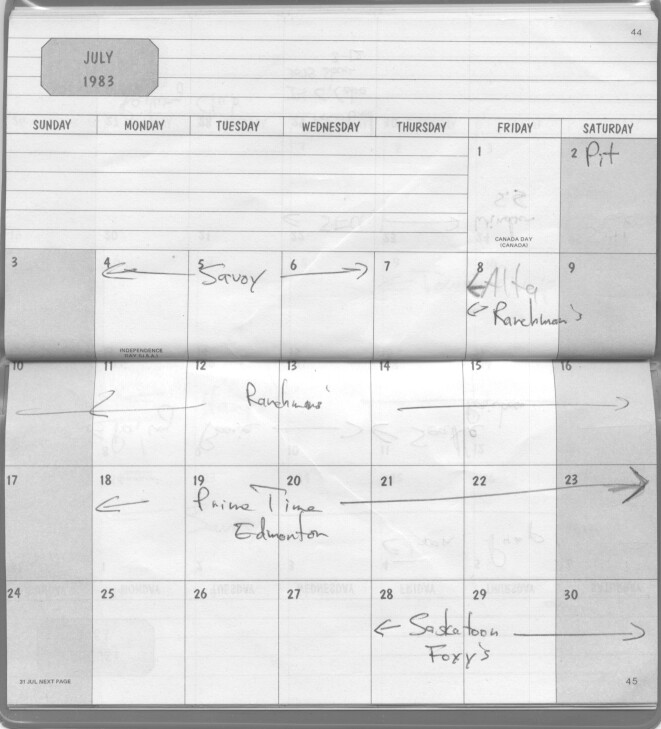 44
JULY
1983
SUNDAY MONDAY TUESDAY WEDNESDAY THURSDAY FRIDAY SATURDAY
1 2 Pit
CANADA DAY
(CANADA)
3 4 5 6 7 8 9
Savoy
Alta
Ranchman's
INDEPENDENCE
DAY (U.S.A.)
10 11 12 13 14 15 16
Ranchmans'
17 18 19 20 21 22 23
Prime Time
Edmonton
24 25 26 27 28 29 30
Saskatoon
Foxy's
31 JUL NEXT PAGE
45